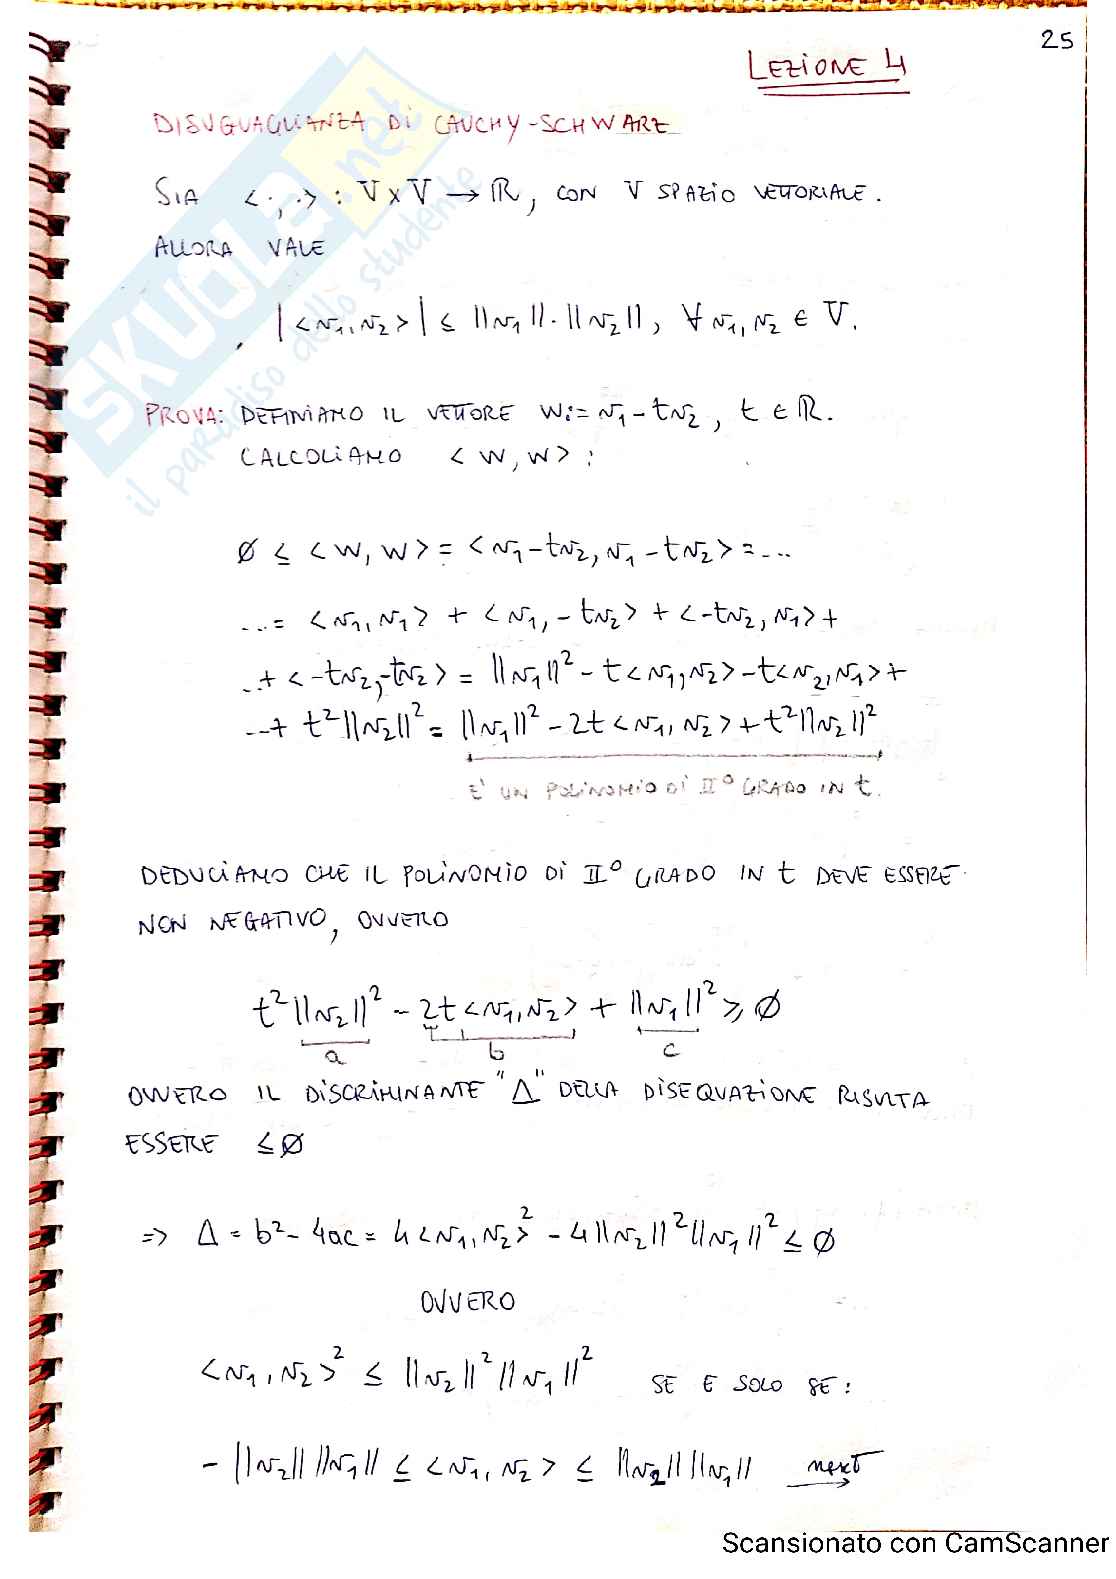 25
LEZIONE 4
DISUGUAGLIANZA DI CAUCHY-SCHWARZ
SIA <·,·> : V×V → ℝ, CON V SPAZIO VETTORIALE.
ALLORA VALE
|<v₁,v₂>| ≤ ||v₁||·||v₂||, ∀ v₁,v₂ ∈ V.
PROVA: DEFINIAMO IL VETTORE W:= v₁-tv₂, t ∈ ℝ.
CALCOLIAMO <w,w>:
∅ ≤ <w,w> = <v₁-tv₂, v₁-tv₂> = ...
...= <v₁,v₁> + <v₁,-tv₂> + <-tv₂,v₁> +
...+ <-tv₂,-tv₂> = ||v₁||² - t<v₁,v₂> - t<v₂,v₁> +
...+ t²||v₂||² = ||v₁||² - 2t<v₁,v₂> + t²||v₂||²
E' UN POLINOMIO DI II° GRADO IN t.
DEDUCIAMO CHE IL POLINOMIO DI II° GRADO IN t DEVE ESSERE
NON NEGATIVO, OVVERO
t²||v₂||² - 2t<v₁,v₂> + ||v₁||² ≥ ∅
a b c
OVVERO IL DISCRIMINANTE "Δ" DELLA DISEQUAZIONE RISULTA
ESSERE ≤ ∅
=> Δ = b²-4ac = 4<v₁,v₂>² - 4||v₂||²||v₁||² ≤ ∅
OVVERO
<v₁,v₂>² ≤ ||v₂||²||v₁||² SE E SOLO SE:
-||v₂||||v₁|| ≤ <v₁,v₂> ≤ ||v₂||||v₁|| next
SKUOLA.net
il paradiso dello studente
Scansionato con CamScanner